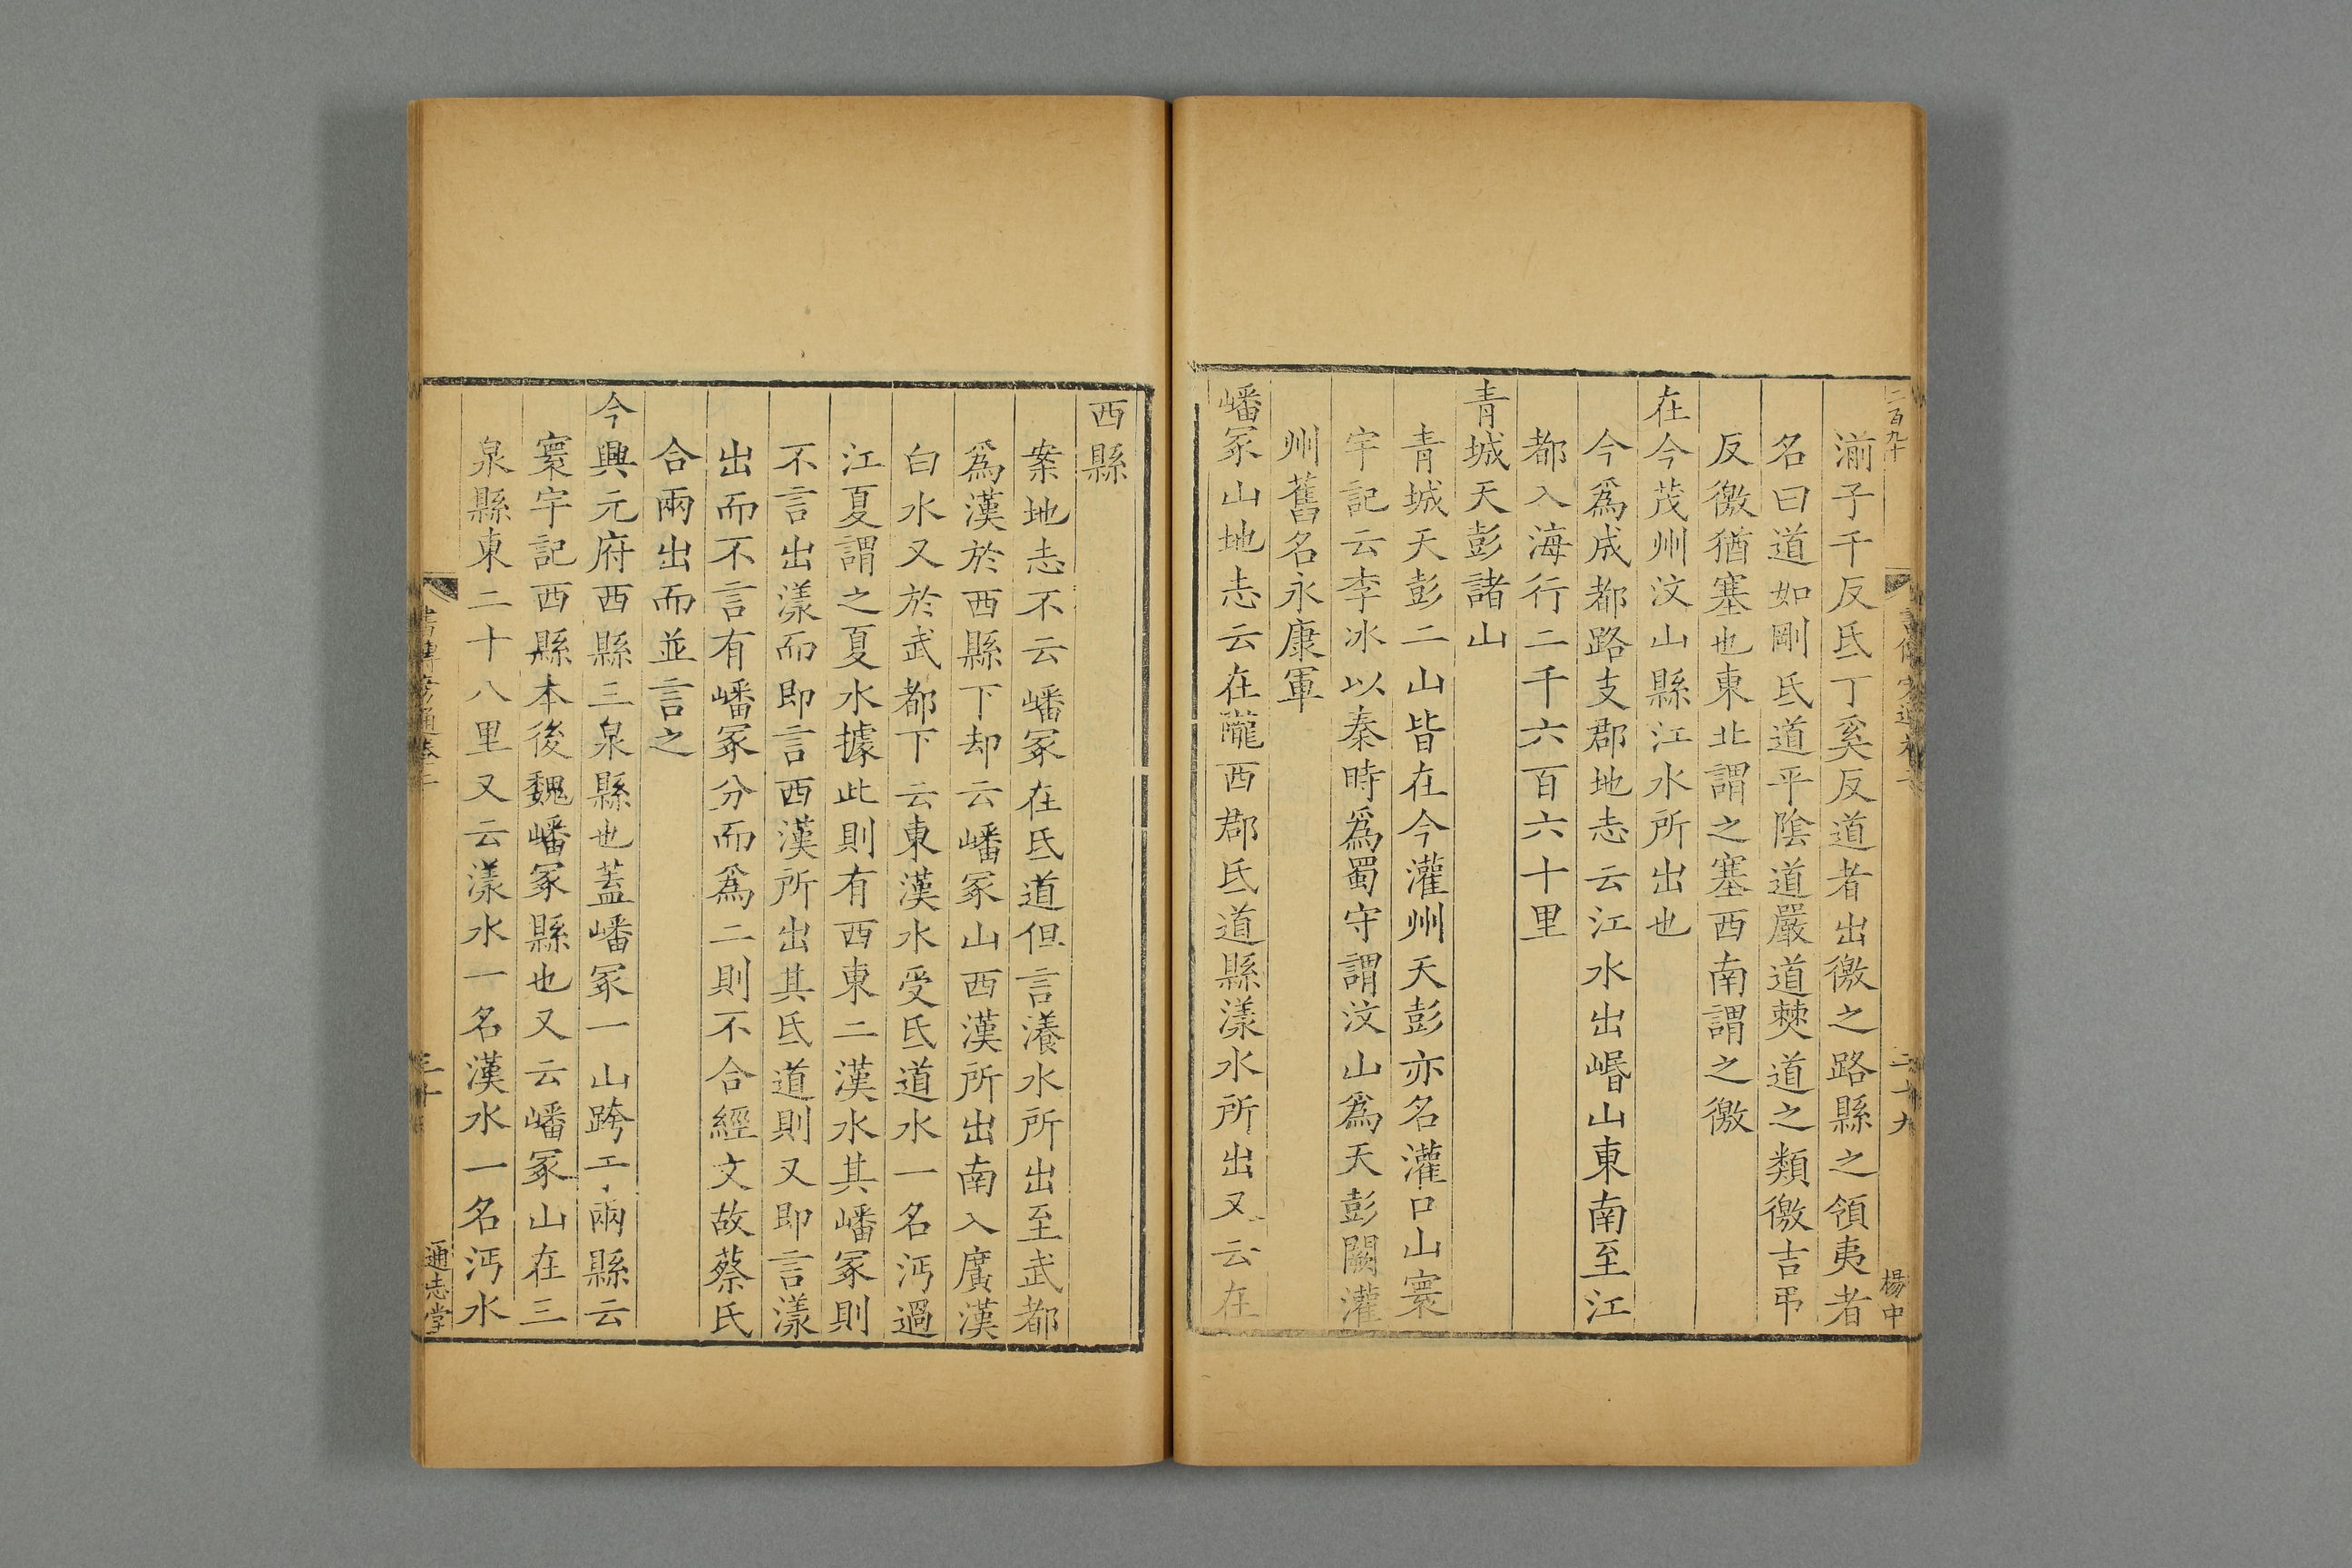 二百九十
湔子千反氐丁奚反道者出徼之路縣之領夷者
名曰道如剛氐道平陰道嚴道僰道之類徼吉弔
反徼猶塞也東北謂之塞西南謂之徼
在今茂州汶山縣江水所出也
今爲成都路支郡地志云江水出㟭山東南至江
都入海行二千六百六十里
青城天彭諸山
青城天彭二山皆在今灌州天彭亦名灌口山寰
宇記云李冰以秦時爲蜀守謂汶山爲天彭闕灌
州舊名永康軍
嶓冢山地志云在隴西郡氐道縣漾水所出又云在
二十九
楊中
西縣
案地志不云嶓冢在氐道但言瀁水所出至武都
爲漢於西縣下却云嶓冢山西漢所出南入廣漢
白水又於武都下云東漢水受氐道水一名沔過
江夏謂之夏水據此則有西東二漢水其嶓冢則
不言出漾而即言西漢所出其氐道則又即言漾
出而不言有嶓冢分而爲二則不合經文故蔡氏
合兩出而並言之
今興元府西縣三泉縣也蓋嶓冢一山跨于兩縣云
寰宇記西縣本後魏嶓冢縣也又云嶓冢山在三
泉縣東二十八里又云漾水一名漢水一名沔水
三十
通志堂